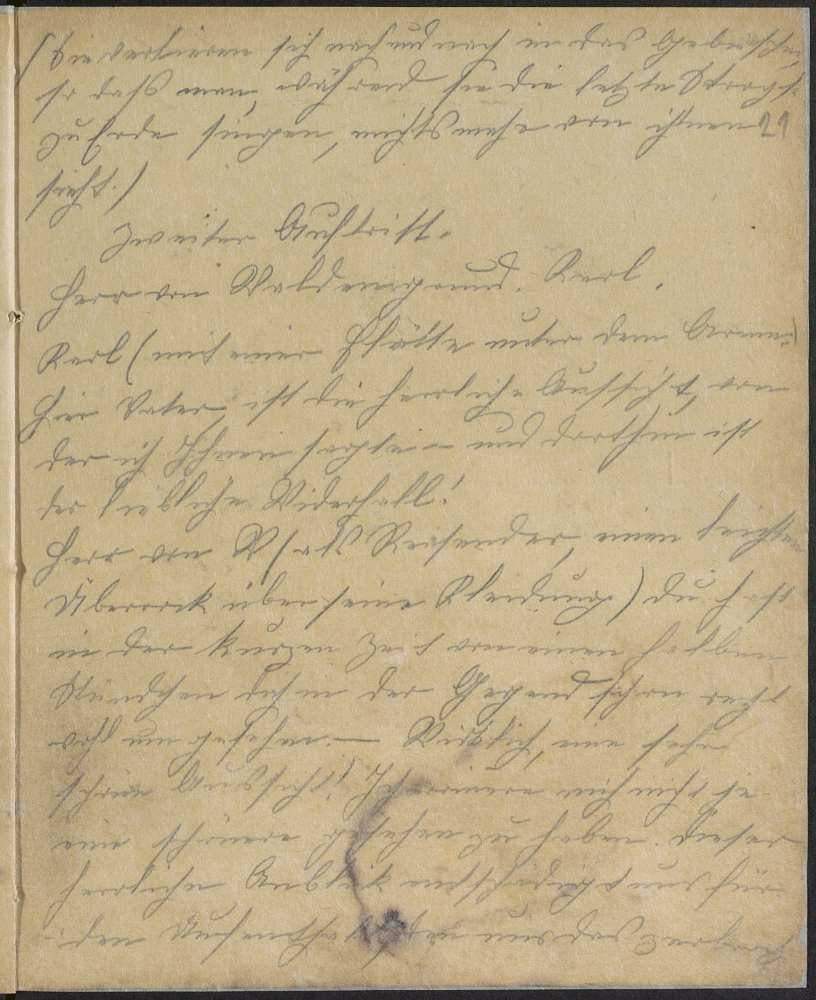 (Sie verlieren sich nach und nach in das Gebüsche,
so daß man, während sie die letzte Stroph.
zu Ende singen, nichts mehr von ihnen 21
sieht.)
Zweiter Auftritt.
Herr von Waldengrund. Karl.
Karl (mit einer Flöte unter dem Arme:)
Hier Vater, ist die herrliche Aussicht, von
der ich Ihnen sagte – und dorthin ist
der liebliche Widerhall!
Herr von W (als Reisender, einen leichten
Überrock über seine Kleidung) Du hast
in der kurzen Zeit von einem halben
Stündchen dich in der Gegend schon recht
wohl umgesehen. — Wirklich, eine sehr
schöne Aussicht! Ich erinnere mich nicht je
eine schönere gesehen zu haben. Dieser
herrliche Anblick entschädigt uns für
den Aufenthalt, den uns das